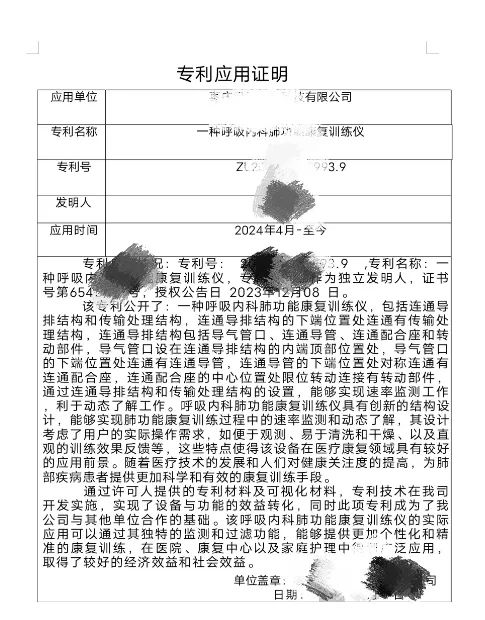 专利应用证明
应用单位 有限公司
专利名称 一种呼吸内科肺功 康复训练仪
专利号 ZL2 993.9
发明人
应用时间 2024年4月-至今
专利 况：专利号： 3.9 ,专利名称：一
种呼吸内 康复训练仪，专 作为独立发明人，证书
号第654 号，授权公告日 2023年12月08 日。
该专利公开了：一种呼吸内科肺功能康复训练仪，包括连通导
排结构和传输处理结构，连通导排结构的下端位置处连通有传输处
理结构，连通导排结构包括导气管口、连通导管、连通配合座和转
动部件，导气管口设在连通导排结构的内端顶部位置处，导气管口
的下端位置处连通有连通导管，连通导管的下端位置处对称连通有
连通配合座，连通配合座的中心位置处限位转动连接有转动部件，
通过连通导排结构和传输处理结构的设置，能够实现速率监测工作
，利于动态了解工作。呼吸内科肺功能康复训练仪具有创新的结构设
计，能够实现肺功能康复训练过程中的速率监测和动态了解，其设计
考虑了用户的实际操作需求，如便于观测、易于清洗和干燥、以及直
观的训练效果反馈等，这些特点使得该设备在医疗康复领域具有较好
的应用前景。随着医疗技术的发展和人们对健康关注度的提高，为肺
部疾病患者提供更加科学和有效的康复训练手段。
通过许可人提供的专利材料及可视化材料，专利技术在我司
开发实施，实现了设备与功能的效益转化，同时此项专利成为了我
公司与其他单位合作的基础。该呼吸内科肺功能康复训练仪的实际
应用可以通过其独特的监测和过滤功能，能够提供更加个性化和精
准的康复训练，在医院、康复中心以及家庭护理中 泛应用，
取得了较好的经济效益和社会效益。
单位盖章： 司
日期：